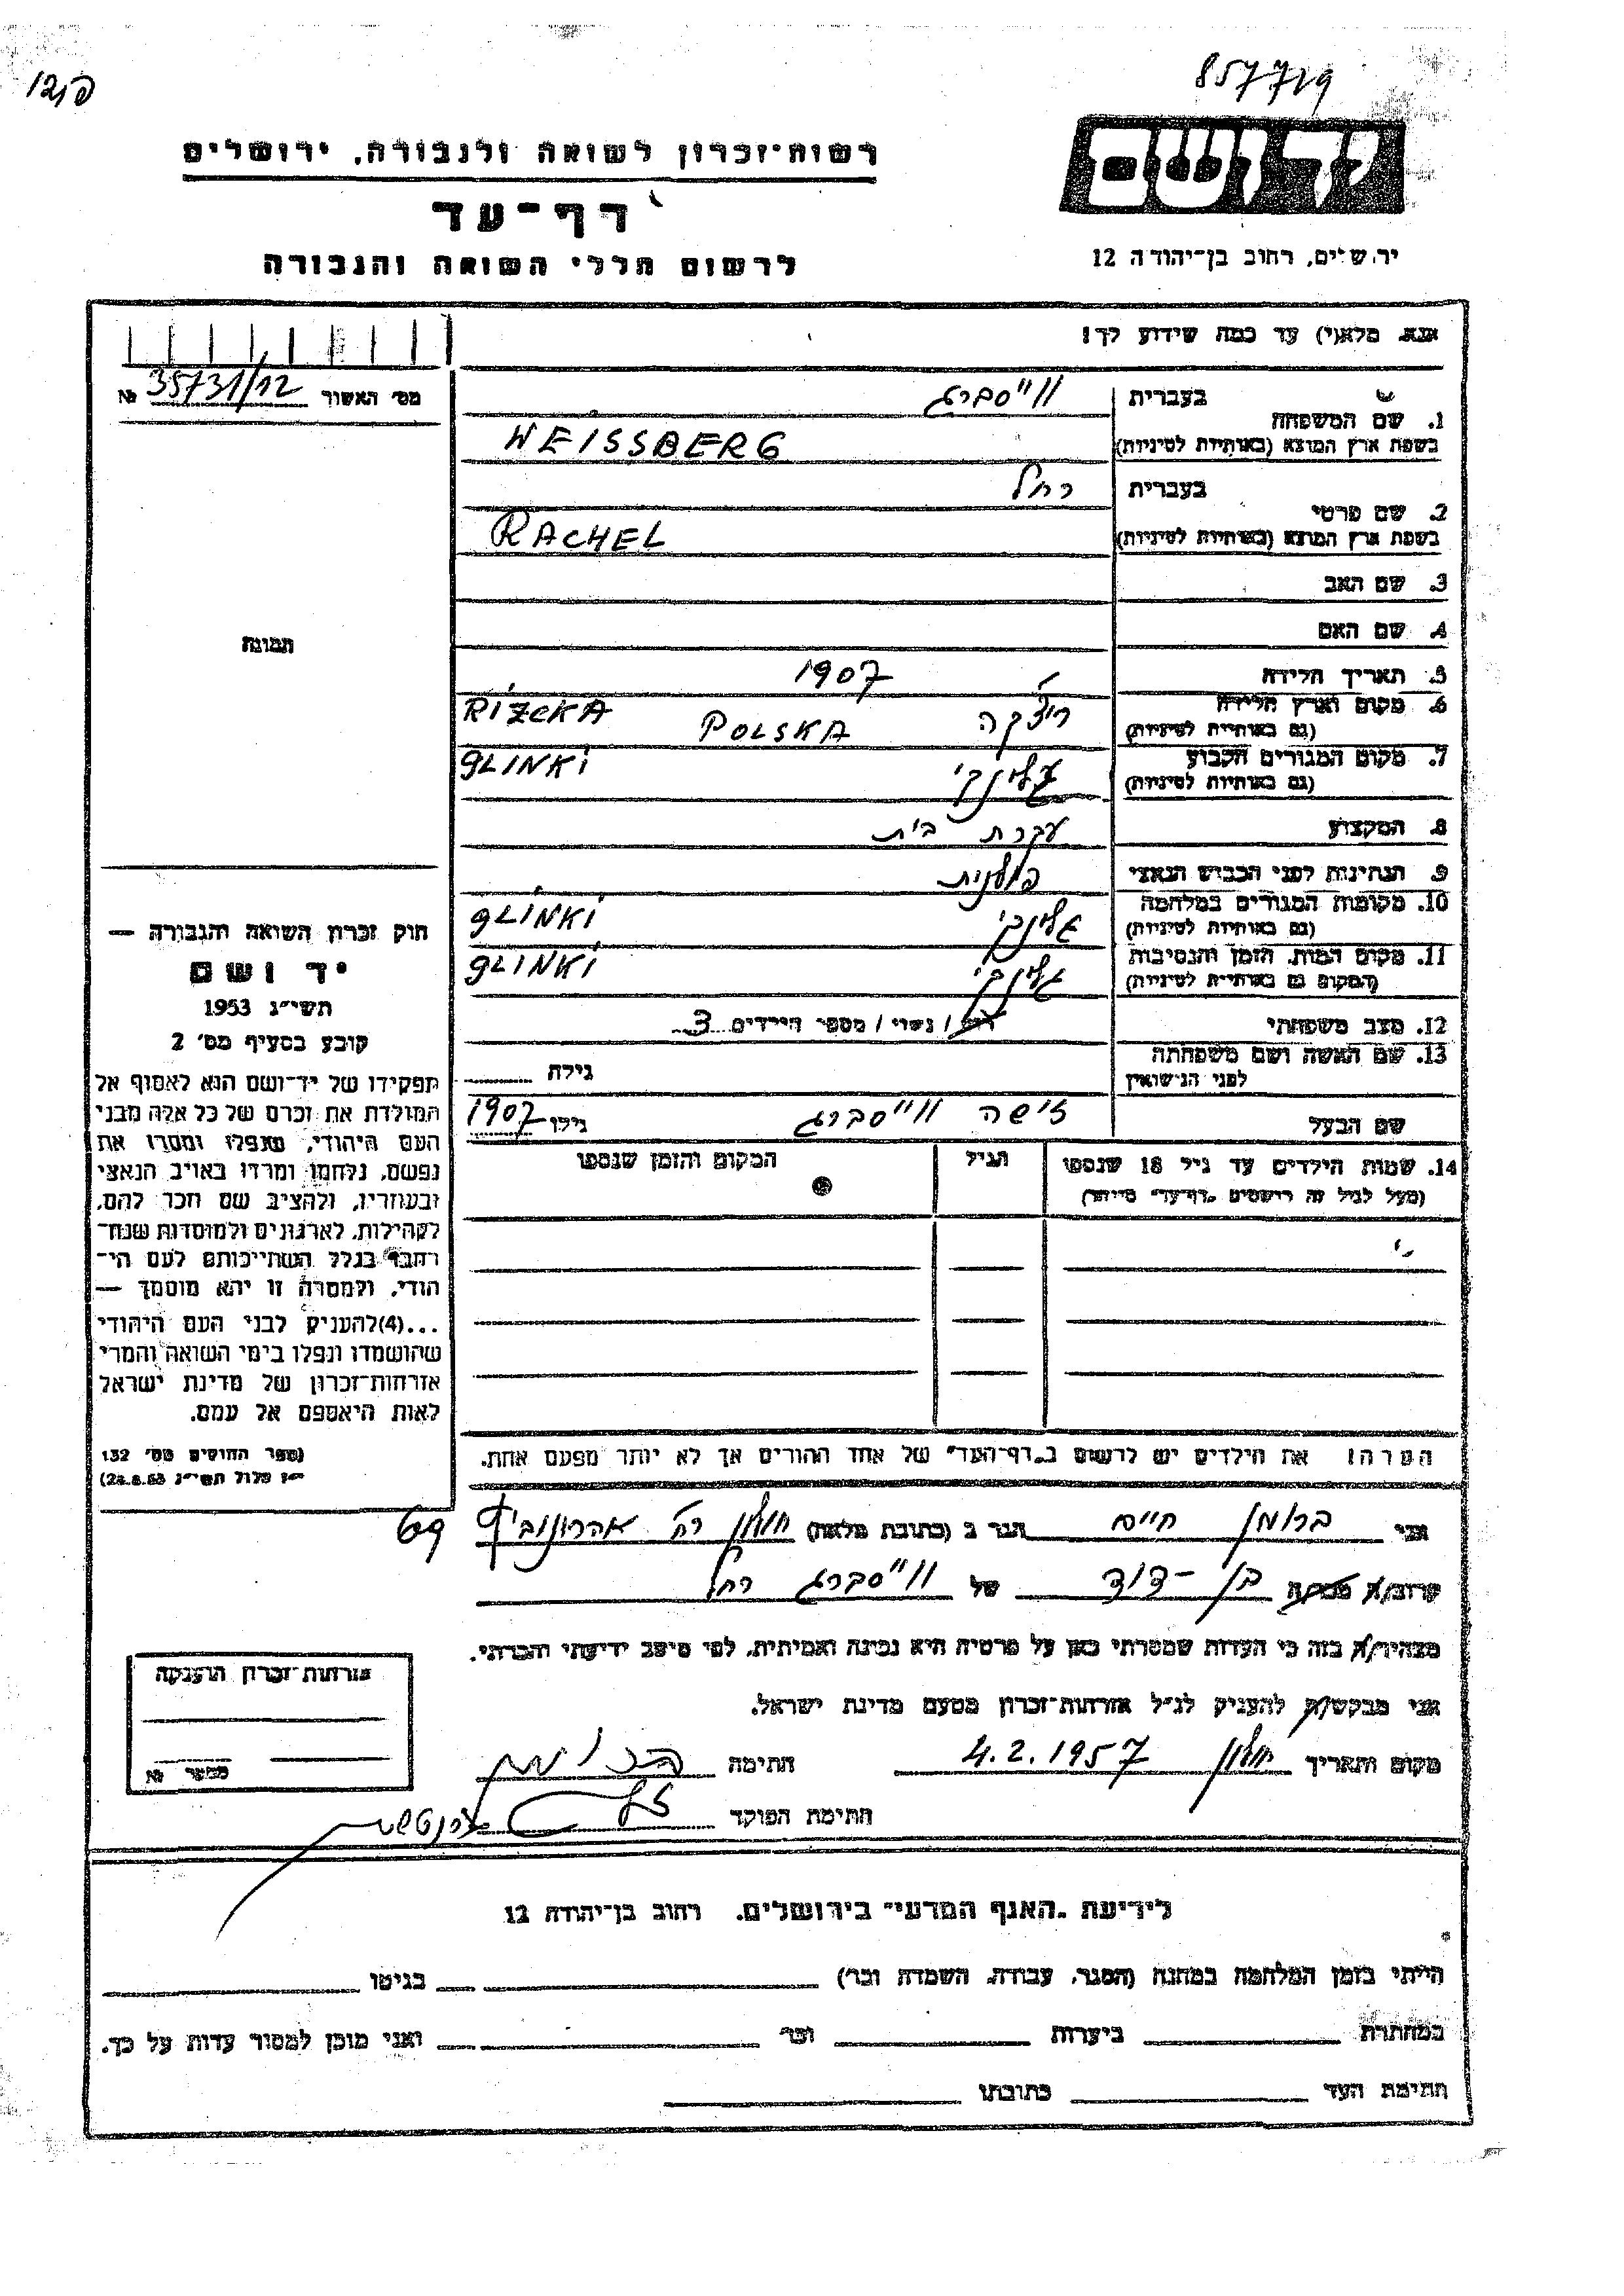 857719
רשות־זכרון לשואה ולגבורה, ירושלים
יד ושם
דף־עד
ירושלים, רחוב בן־יהודה 12
לרשום חללי השואה והגבורה
אנא, מלא(י) עד כמה שידוע לך!
מס׳ האשור 35731/12 №
1. שם המשפחה
בעברית ווייסברג
בשפת ארץ המוצא (באותיות לטיניות) WEISSBERG
2. שם פרטי
בעברית רחל
בשפת ארץ המוצא (באותיות לטיניות) RACHEL
3. שם האב
4. שם האם
תמונה
5. תאריך הלידה 1907
6. מקום וארץ הלידה
(גם באותיות לטיניות) ריצקה POLSKA RIZCKA
7. מקום המגורים הקבוע
(גם באותיות לטיניות) גלינקי GLINKI
8. המקצוע עקרת בית
9. הנתינות לפני הכבוש הנאצי פולנית
10. מקומות המגורים במלחמה
(גם באותיות לטיניות) גלינקי GLINKI
11. מקום המות, הזמן והנסיבות
(המקום גם באותיות לטיניות) גלינקי GLINKI
12. מצב משפחתי רווק / נשוי / מספר הילדים 3
13. שם האשה ושם משפחתה
לפני הנישואין גילה
שם הבעל זישה ווייסברג גילו 1907
14. שמות הילדים עד גיל 18 שנספו הגיל המקום והזמן שנספו
(מעל לגיל זה רושמים „דף־עד״ מיוחד)
חוק זכרון השואה והגבורה —
יד ושם
תשי״ג 1953
קובע בסעיף מס׳ 2
תפקידו של יד־ושם הוא לאסוף אל
המולדת את זכרם של כל אלה מבני
העם היהודי, שנפלו ומסרו את
נפשם, נלחמו ומרדו באויב הנאצי
ובעוזריו, ולהציב שם וזכר להם,
לקהילות, לארגונים ולמוסדות שנח־
רבו בגלל השתייכותם לעם הי־
הודי, ולמטרה זו יהא מוסמך —
...(4)להעניק לבני העם היהודי
שהושמדו ונפלו בימי השואה והמרי
אזרחות־זכרון של מדינת ישראל
לאות היאספם אל עמם.
(ספר החוקים מס׳ 132
י״ז אלול תשי״ג 28.8.53)
הערה: את הילדים יש לרשום ב„דף־העד״ של אחד ההורים אך לא יותר מפעם אחת.
אני ברומן חיים הגר ב (כתובת מלאה) חולון רח׳ אהרונוביץ 69
קרוב/ה מכר/ה בן-דוד של ווייסברג רחל
מצהיר/ה בזה כי העדות שמסרתי כאן על פרטיה היא נכונה ואמיתית, לפי מיטב ידיעתי והכרתי.
אני מבקש/ת להעניק לנ״ל אזרחות־זכרון מטעם מדינת ישראל.
מקום ותאריך חולון 4.2.1957 חתימה ברומן
חתימת הפוקד
אזרחות־זכרון הוענקה
מספר №
לידיעת „האגף המדעי״ בירושלים, רחוב בן־יהודה 12
הייתי בזמן המלחמה במחנה (הסגר, עבודה, השמדה וכו׳) בגיטו
במחתרת ביערות וכו׳ ואני מוכן למסור עדות על כך.
חתימת העד כתובתו